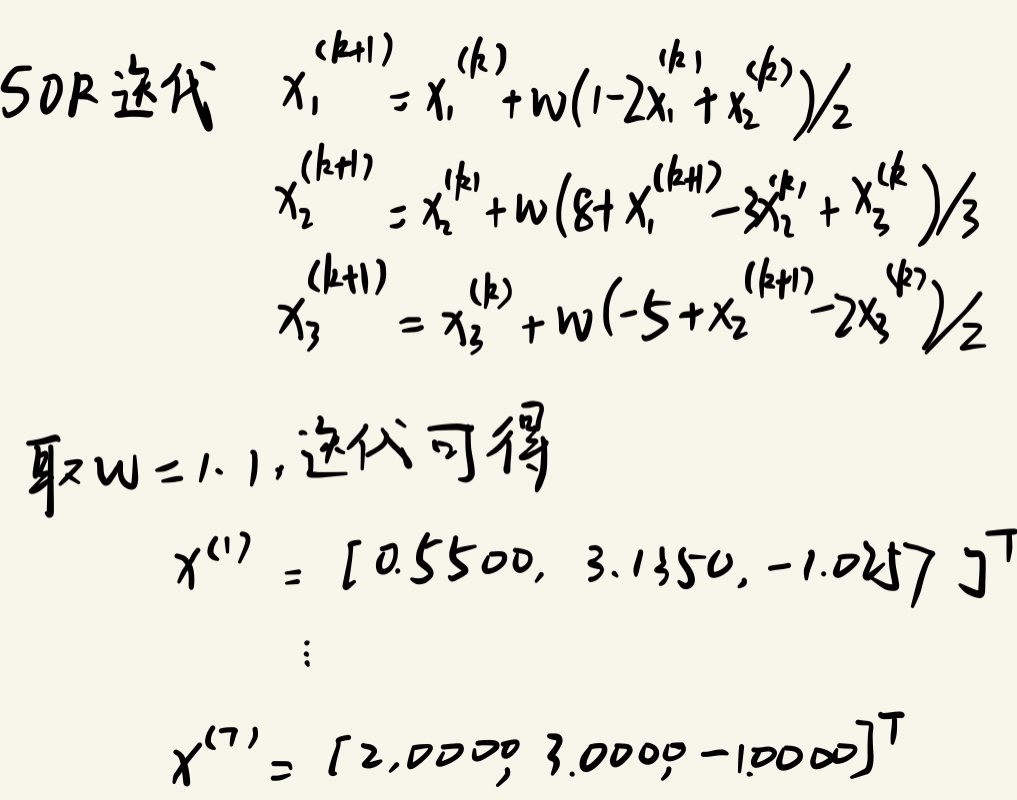 SOR迭代 x₁^(k+1) = x₁^(k) + w(1-2x₁^(k) + x₂^(k))/2
x₂^(k+1) = x₂^(k) + w(8+x₁^(k+1) - 3x₂^(k) + x₃^(k)/3
x₃^(k+1) = x₃^(k) + w(-5+x₂^(k+1) - 2x₃^(k))/2
取w=1.1,迭代可得
x^(1) = [0.5500, 3.1350, -1.0257]^T
⋮
x^(7) = [2.0000, 3.0000, -1.0000]^T